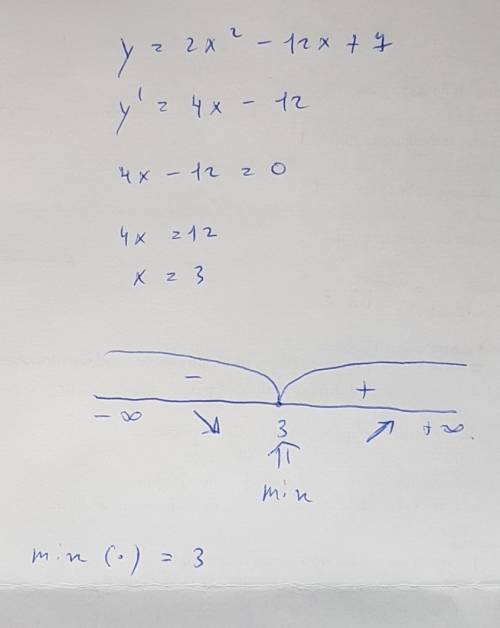 y = 2x² - 12x + 7
y' = 4x - 12
4x - 12 = 0
4x = 12
x = 3
- +
-∞ ↘ 3 ↗ +∞.
⇑
min
min (•) = 3